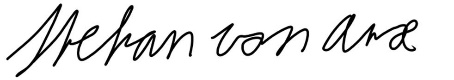 Stefan von Arx